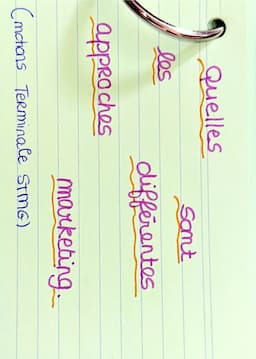 Quelles sont
les différentes
approches marketing.
(notions Terminale STMG)